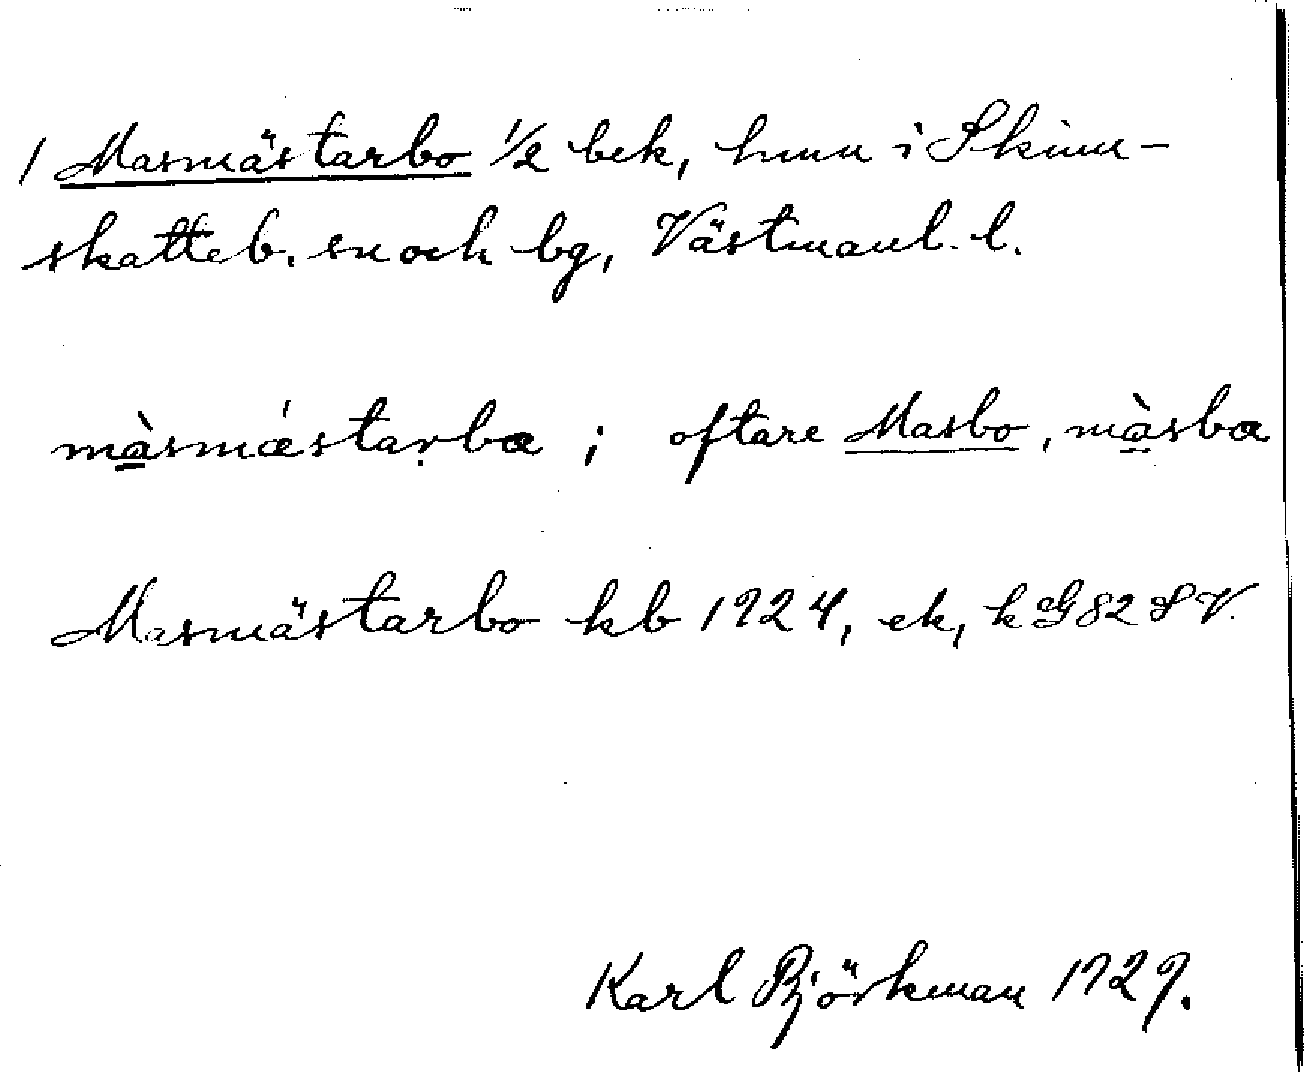 1 Masmästarbo 1/2 bek, hmn i Skinn-
skatteb. sn och bg, Västmanl. l.
màsmǽstarba ; oftare Masbo, màsba
Masmästarbo kb 1924, ek, k G 82 S V.
Karl Björkman 1929.